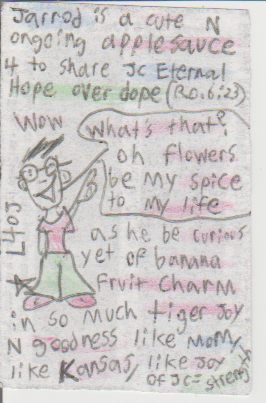 Jarrod is a cute N
ongoing applesauce
4 to share JC Eternal
Hope over dope (Ro.6:23)
Wow
What's that?
oh flowers
be my spice
to my life
L4OJ
as he be curious
yet of banana
Fruit Charm
in so much tiger Joy
N goodness like Mom,
like Kansas, like Joy
of JC = strength